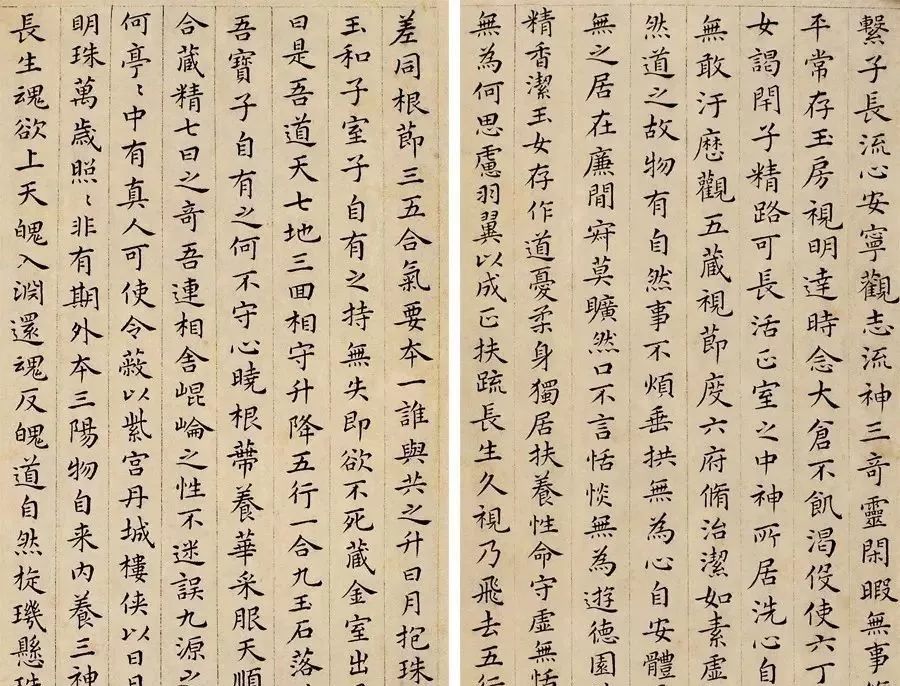 繫子長流心安寧觀志流神三奇靈閑暇無事
平常存玉房視明達時念大倉不飢渴伇使六丁
女謁閇子精路可長活正室之中神所居洗心自
無敢汙歷觀五藏視節度六府脩治潔如素虛
然道之故物有自然事不煩垂拱無為心自安體
無之居在廉間寂莫曠然口不言恬惔無為遊德園
精香潔玉女存作道憂柔身獨居扶養性命守虛無恬
無為何思慮羽翼以成正扶疏長生久視乃飛去五行
差同根節三五合氣要本一誰與共之升日月抱珠
玉和子室子自有之持無失即欲不死藏金室出
日是吾道天七地三回相守升降五行一合九玉石落
吾寶子自有之何不守心曉根蔕養華采服天順
合藏精七日之奇吾連相舍崐崘之性不迷誤九源之
何亭〻中有真人可使令蔽以紫宮丹城樓俠以日
明珠萬歲照〻非有期外本三陽物自来内養三神
長生魂欲上天魄入淵還魂反魄道自然旋璣懸珠